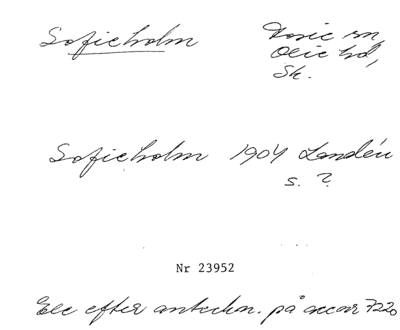 Sofieholm
Onsjö hd,
Sk.
Sofieholm 1904 Landén
s. ?
Nr 23952
efter anteckn. på accar 7220